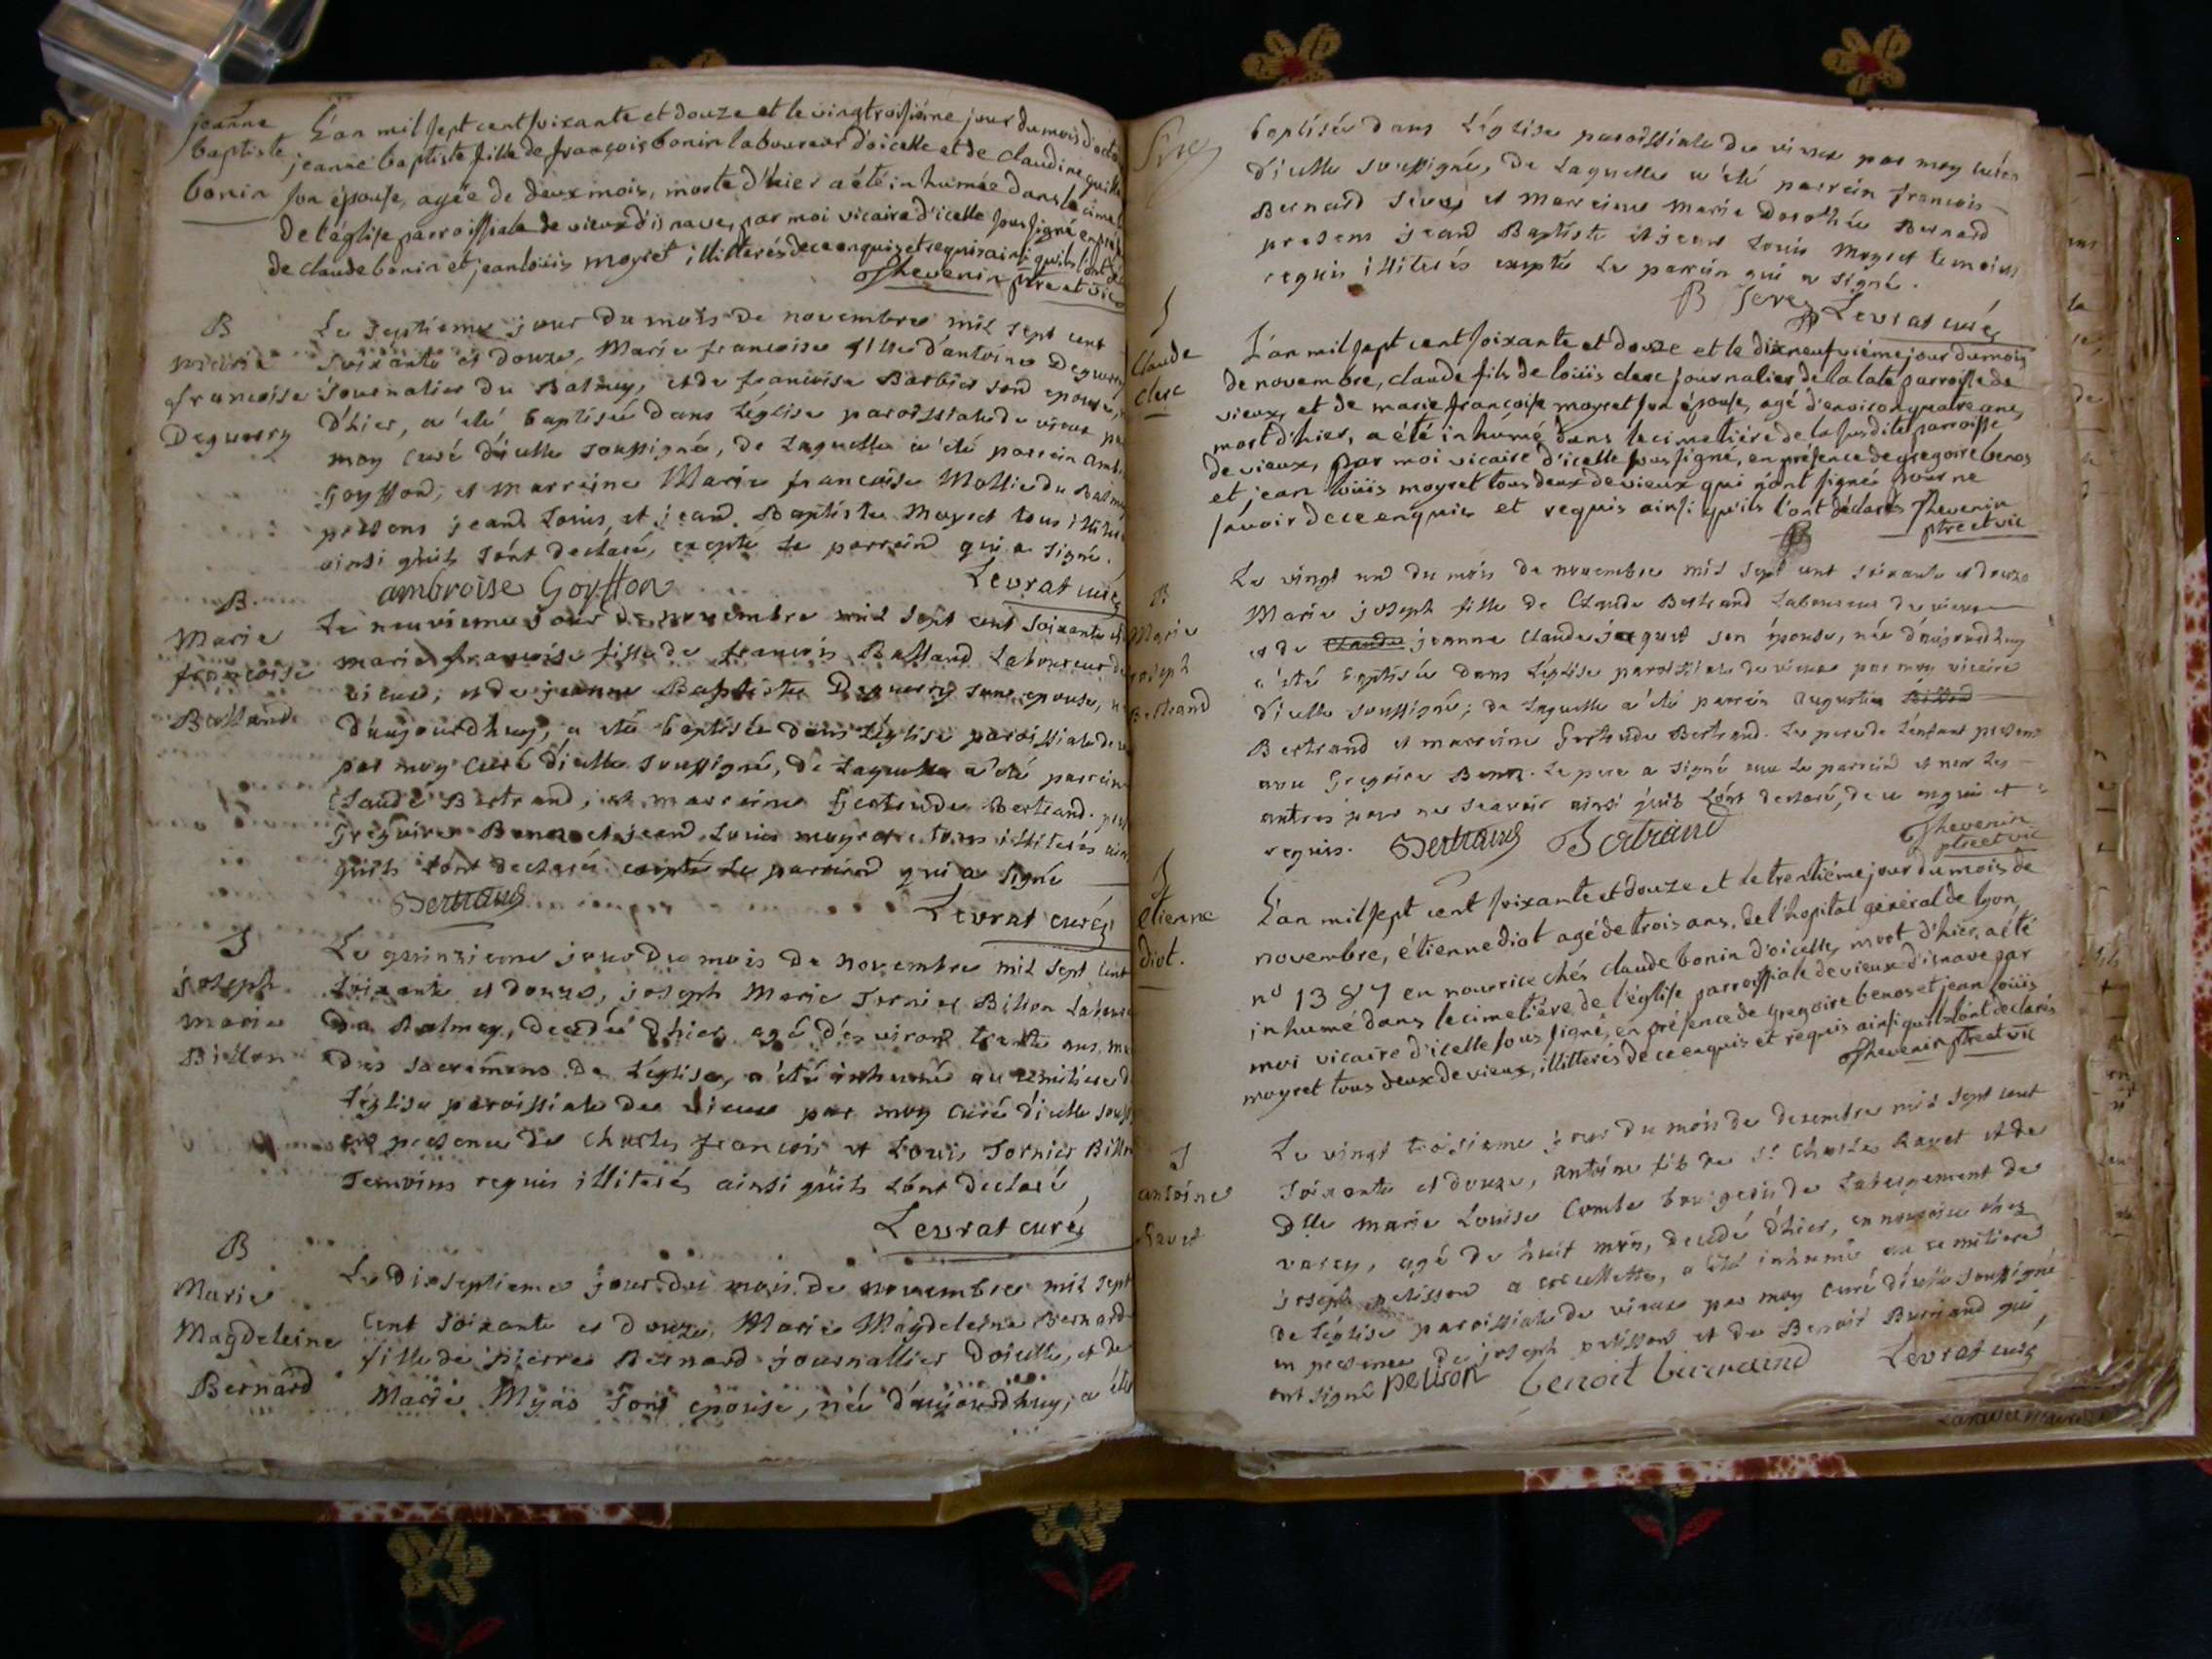 jeanne
baptiste
bonin
L'an mil sept cent soixante et douze et le vingtroisième jour du mois d'octo
jeanne baptiste fille de françois bonin laboureur d'oicelle et de claudine
son épouse, agée de deux mois, morte d'hier a été inhumée dans le cimet
de l'église parroissiale de vieux d'isnave, par moi vicaire d'icelle soussigné en
de claude bonin et jean loüis moyret illitterés de ce enquis et requis ainsi qu'ils l'ont
Thevenin ptre et vic
B
marie
francoise
Deguerry
Le septieme jour du mois de novembre mil sept cent
soixante et douze, Marie francoise fille d'antoine Deguerry
Journalier du Balmey, et de francoise Barbier son epouse,
d'hier, a été baptisée dans l'église paroissiale de vieux
moy curé d'icelle soussigné, de laquelle a été parrein
Goyffon, et marreine Marie francoise Mollie du Balm
presens jean Louis et jean Baptiste Moyret tous
ainsi qu'ils l'ónt declaré, excepté le parrein qui a signé.
ambroise Goyffon
Levrat curé
B
Marie
francoise
Balland
Le neuvieme jour de novembre mil sept cent soixante et
marie francoise fille de francois Balland Laboureur de
vieux, et de jeanne Baptiste Deguerry son epouse,
d'aujourdhuy, a été baptisée dans l'église paroissiale de
par moy curé d'icelle soussigné, de laquelle a été parrein
Claude Bertrand, et marreine Gertrude Bertrand.
Gregoire Benoz et jean Louis moyret tous illiterés
qu'ils l'ónt declaré excepté le parrein qui a signé
Bertrand
Levrat curé
J
joseph
marie
Billon
Le quinzieme jour du mois de novembre mil sept cent
soixante et douze, joseph Marie Tornier Billon
du Balmey, decedé d'hier, agé d'environ trente ans,
des sacremens de l'église, a été inhumé au cemitiere
l'église paroissiale de vieux par moy curé d'icelle
en presence de Charles françois et Louis Tornier
Temoins requis illiterés ainsi qu'ils l'ónt declaré,
Levrat curé
B
Marie
Magdeleine
Bernard
Le dixseptieme jour du mois de novembre mil sept
cent soixante et douze, Marie Magdeleine Bernard
fille de pierre Bernard journallier d'oicelle, et de
Marie Myas son epouse, née d'aujourdhuy, a été
baptisée dans l'église paroissiale de vieux par moy curé
d'icelle soussigné, de laquelle a été parrein francois
Bernard et marreine Marie Dorothée Bernard
presens jean Baptiste et jean Louis Moyret temoins
requis illiterés excepté le parrein qui a signé.
Levrat curé
J
Claude
clerc
L'an mil sept cent soixante et douze et le dixneufvième jour du mois
de novembre, claude fils de loüis clerc journalier de la paroisse de
vieux, et de marie françoise moyret son épouse, agé d'environ quatre ans,
mort d'hier, a été inhumé dans le cimetière de la susdite parroisse
de vieux, par moi vicaire d'icelle soussigné, en présence de gregoire benos
et jean loüis moyret tous deux de vieux qui n'ont signés pour ne
savoir de ce enquis et requis ainsi qu'ils l'ont déclarés Thevenin
ptre et vic
B
Marie
joseph
Bertrand
Le vingt und du mois de novembre mil sept cent soixante et douze
Marie joseph fille de Claude Bertrand Laboureur de vieux
et de Claude jeanne Claude jaquet son épouse, née d'aujourdhuy
a été baptisée dans l'église paroissiale de vieux par moy vicaire
d'icelle soussigné; de laquelle a été parrein augustin
Bertrand et marreine Gertrude Bertrand. Le pere de l'enfant present
avec Gregoire Benoz. Le pere a signé avec le parrein et non les
autres pour ne sçavoir ainsi qu'ils l'ónt declaré, de ce enquis et
requis. Bertrand Bertrand
Thevenin
ptre et vic
J
étienne
diot.
L'an mil sept cent soixante et douze et le trentième jour du mois de
novembre, étienne diot agé de trois ans, de l'hopital général de lyon,
nº 1387 en nourrice chés claude bonin d'oicelle, mort d'hier, a été
inhumé dans le cimetière de l'église parroissiale de vieux d'isnave par
moi vicaire d'icelle soussigné, en présence de gregoire benos et jean loüis
moyret tous deux de vieux, illitterés de ce enquis et requis ainsi qu'ils l'ont declarés
Thevenin ptre et vic
J
antoine
Ravet
Le vingt troisieme jour du mois de desembre mil sept cent
soixante et douze, antoine fils de Sr Charles Ravet et de
Dlle marie Louise Comte bourgeois de
agé de huit mois, decedé d'hier, en nourrice chez
joseph pelisson a a été inhumé au cemitiere
de l'église paroissiale de vieux par moy curé d'icelle soussigné
en presence de joseph pelisson et de Benoit Burriand qui
ont signé pelison benoit burriand Levrat curé